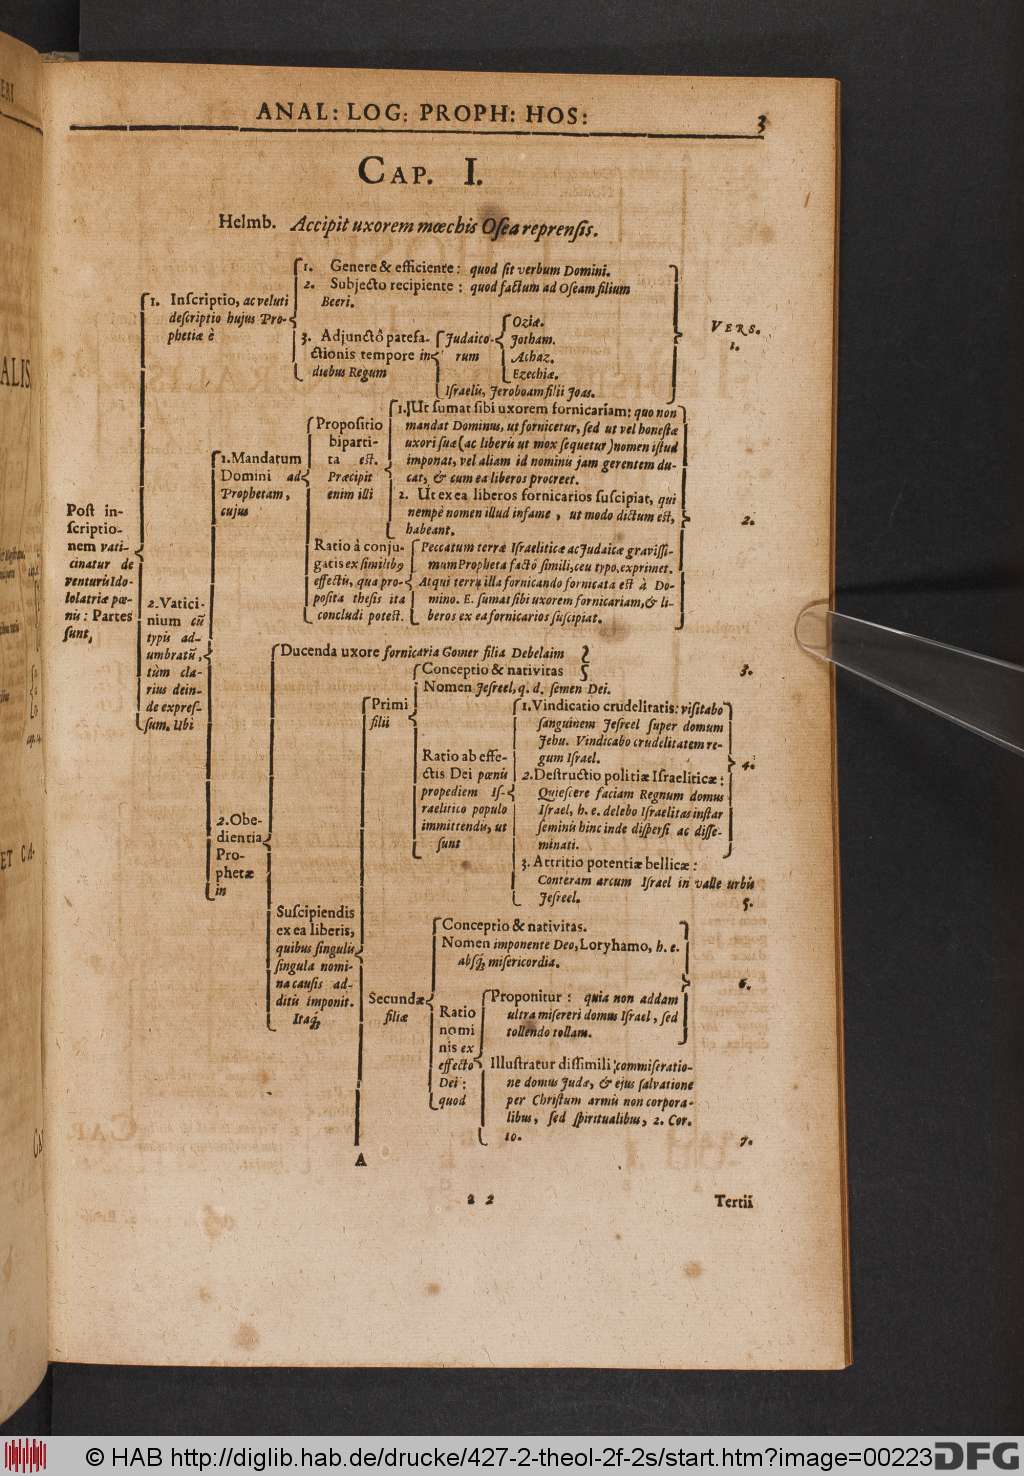 ANAL: LOG: PROPH: HOS:
3
CAP. I.
Helmb. Accipit uxorem mœchis Osea reprensis.
Post in-
scriptio-
nem vati-
cinatur de
venturis Ido-
lolatriæ pœ-
nis: Partes
sunt,
1. Inscriptio, ac veluti
descriptio hujus Pro-
phetiæ è
1. Genere & efficiente: quod sit verbum Domini.
2. Subjecto recipiente: quod factum ad Oseam filium
Beeri.
3. Adjunctô patefa-
ctionis tempore in
diebus Regum
Judaico-
rum
Oziæ.
Jotham.
Achaz.
Ezechiæ.
Israelis, Jeroboam filii Joas.
VERS.
1.
2. Vatici-
nium cũ
typis ad-
umbratũ,
tùm cla-
rius dein-
de expres-
sum. Ubi
1. Mandatum
Domini ad
Prophetam,
cujus
Propositio
biparti-
ta est.
Præcipit
enim illi
1. Ut sumat sibi uxorem fornicariam: quo non
mandat Dominus, ut fornicetur, sed ut vel honestæ
uxori suæ (ac liberis ut mox sequetur) nomen istud
imponat, vel aliam id nominis jam gerentem du-
cat, & cum ea liberos procreet.
2. Ut ex ea liberos fornicarios suscipiat, qui
nempè nomen illud infame, ut modo dictum est,
habeant.
2.
Ratio à conju-
gatis ex similibꝰ
effectis, qua pro-
posita thesis ita
concludi potest.
Peccatum terræ Israeliticæ ac Judaicæ gravissi-
mum Propheta factô simili, ceu typo, exprimet.
Atqui terra illa fornicando fornicata est à Do-
mino. E. sumat sibi uxorem fornicariam, & li-
beros ex ea fornicarios suscipiat.
2. Obe-
dientia
Pro-
phetæ
in
Ducenda uxore fornicaria Gomer filia Debelaim
Suscipiendis
ex ea liberis,
quibus singulis
singula nomi-
na causis ad-
ditis imponit.
Itaq;
Primi
filii
Conceptio & nativitas
3.
Nomen Jesreel, q. d. semen Dei.
Ratio ab effe-
ctis Dei pœnis
propediem Is-
raelitico populo
immittendis, ut
sunt
1. Vindicatio crudelitatis: visitabo
sanguinem Jesreel super domum
Jehu. Vindicabo crudelitatem re-
gum Israel.
4.
2. Destructio politiæ Israeliticæ:
Quiescere faciam Regnum domus
Israel, h. e. delebo Israelitas instar
seminis hinc inde dispersi ac disse-
minati.
3. Attritio potentiæ bellicæ:
Conteram arcum Israel in valle urbis
Jesreel.
5.
Secundæ
filiæ
Conceptio & nativitas.
Nomen imponente Deo, Loryhamo, h. e.
absq; misericordia.
6.
Ratio
nomi
nis ex
effecto
Dei:
quod
Proponitur: quia non addam
ultra misereri domus Israel, sed
tollendo tollam.
Illustratur dissimili: commiseratio-
ne domus Juda, & ejus salvatione
per Christum armis non corpora-
libus, sed spiritualibus, 2. Cor.
10.
7.
A
a 2
Tertii
© HAB http://diglib.hab.de/drucke/427-2-theol-2f-2s/start.htm?image=00223
DFG